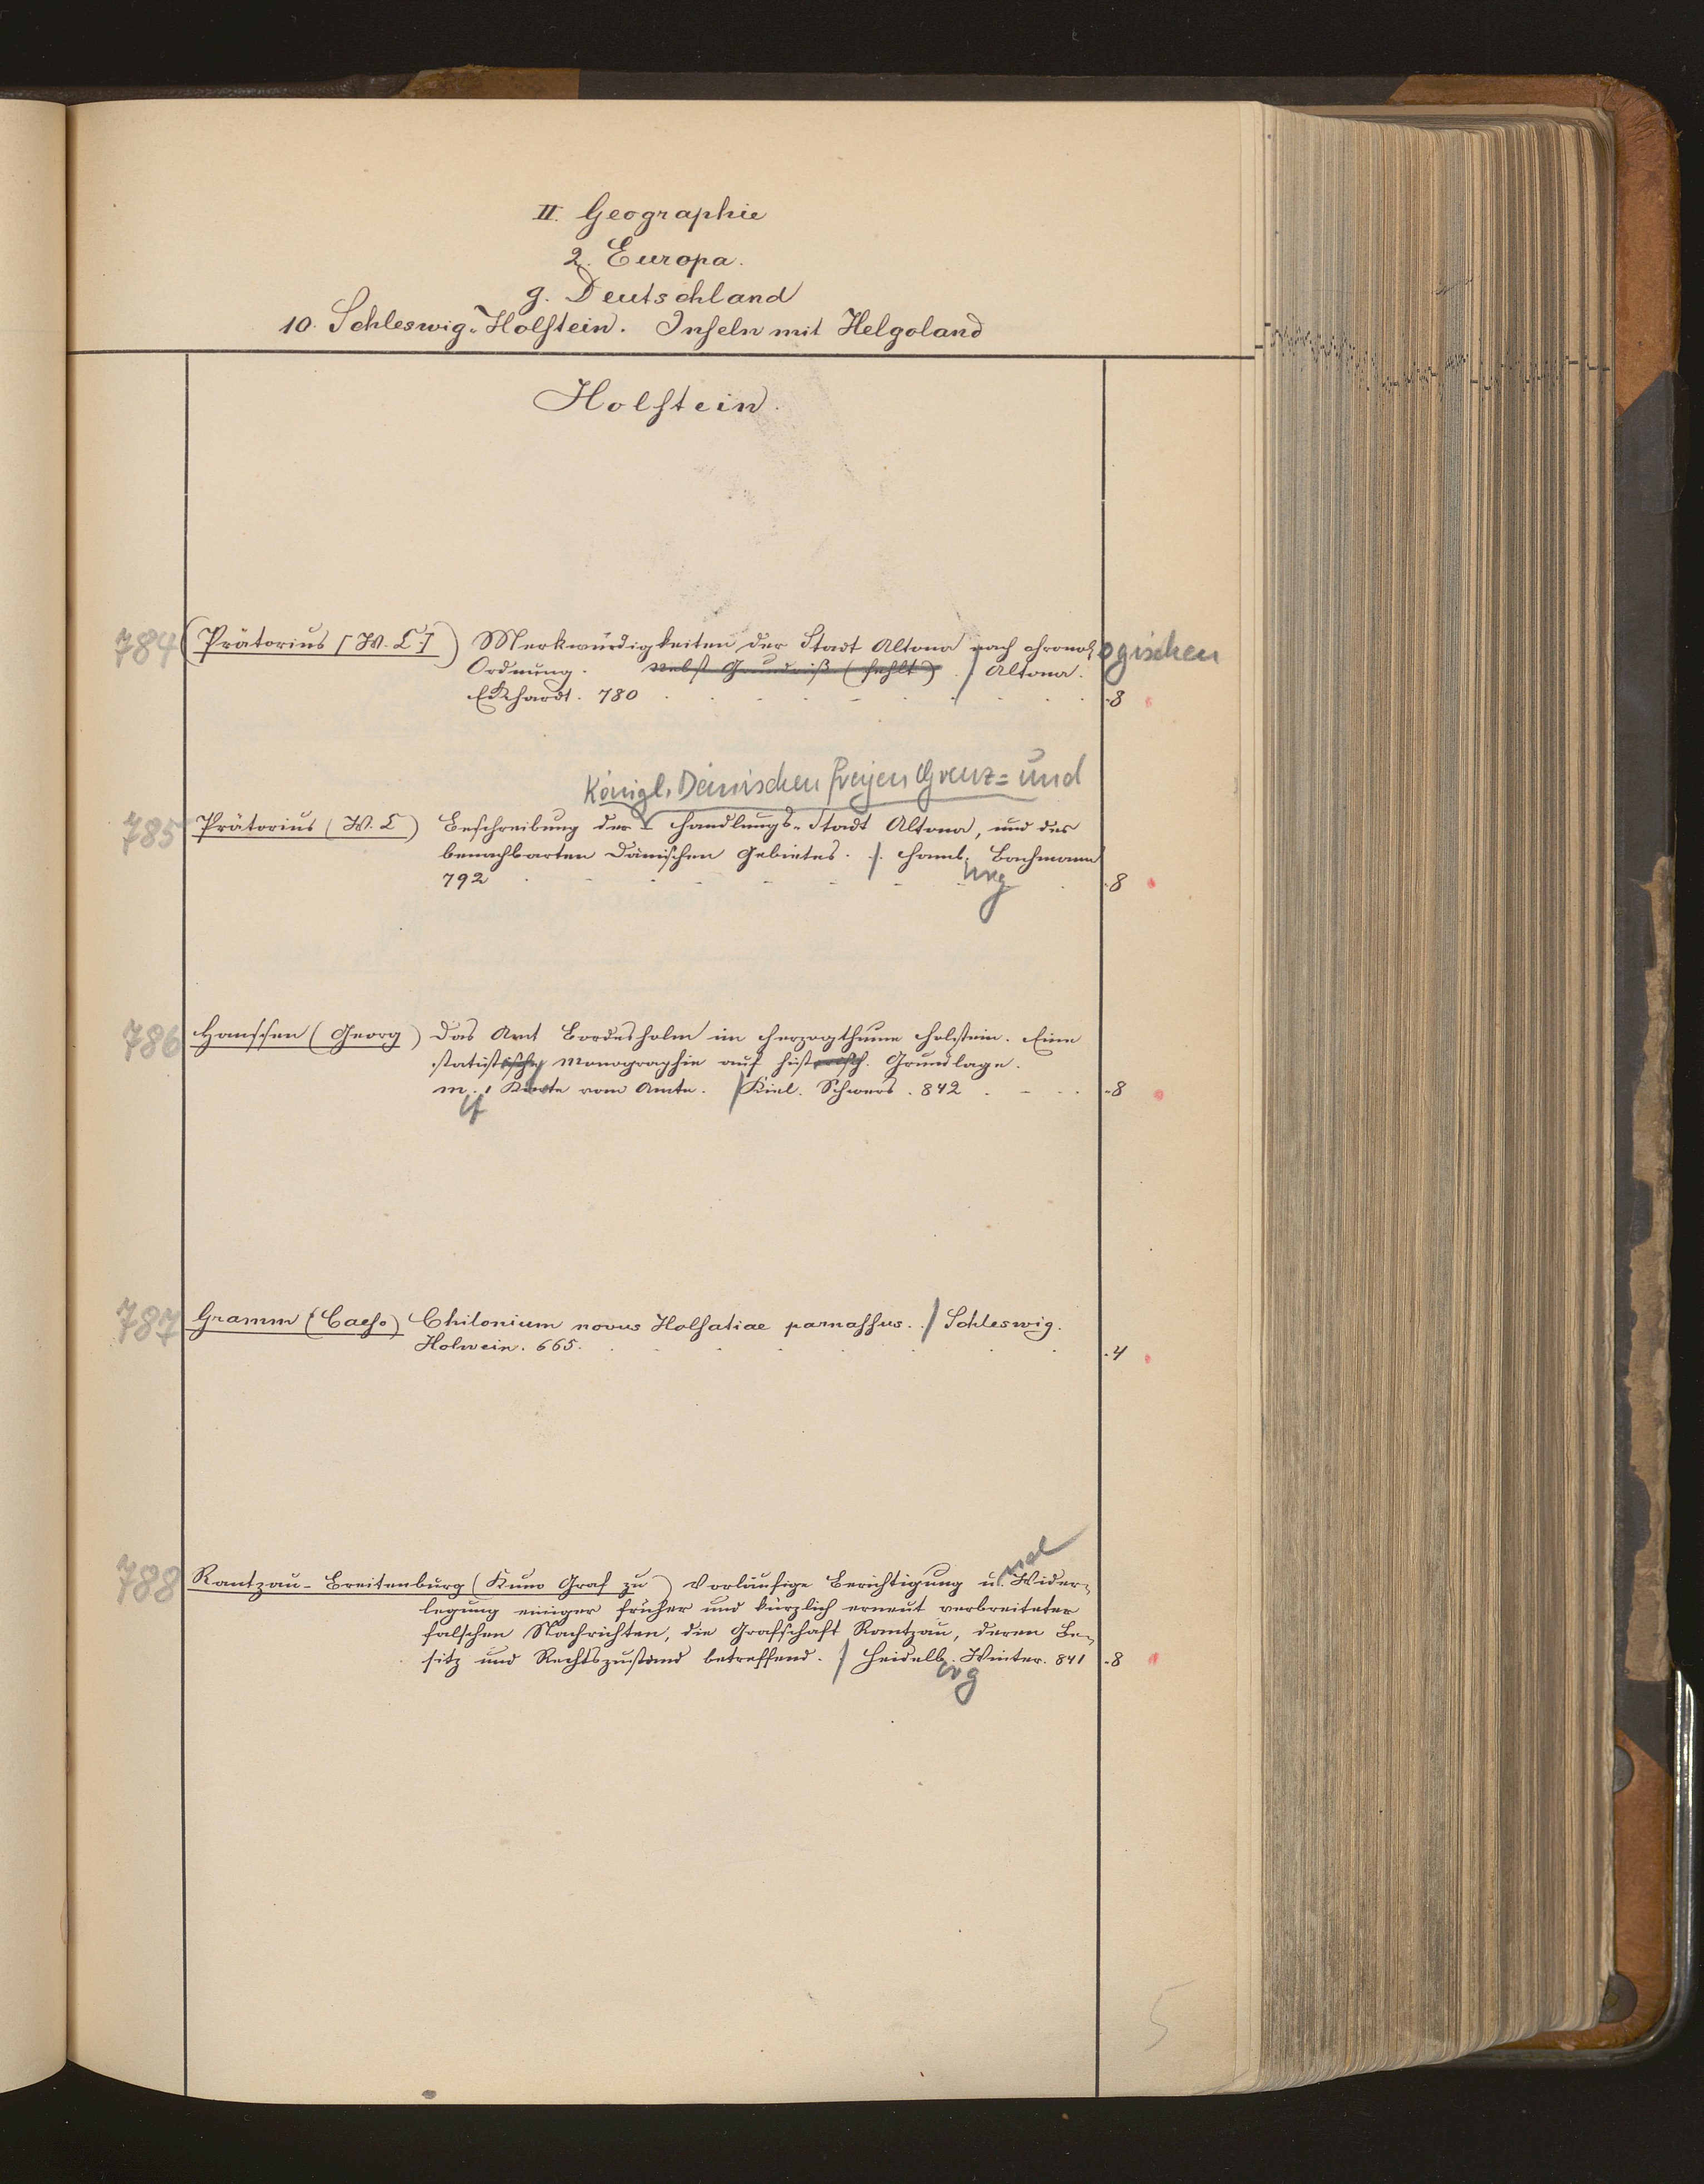 II. Geographie
2. Europa.
g. Deutschland
10. Schleswig-Holstein. Inseln mit Helgoland
Holstein.
784 (Prätorius [W. C.]) Merkwürdigkeiten der Stadt Altona nach chronologischen
Ordnung. nebst Grundriß (fehlt). / Altona.
Eckhardt. 780 8
Königl. Dänischen freyen Grenz= und
785 Prätorius (W. C) Beschreibung der Handlungs-Stadt Altona, und des
benachbarten Dänischen Gebietes. / Hamb. Bachmann
urg
792 8
786 Hanssen (Georg) Das Amt Bordesholm im Herzogthume Holstein. Eine
statistische Monographie auf historisch. Grundlage.
m. 1 Karte vom Amte. / Kiel. Schwers. 842 8
787 Gramm (Caeso) Chilonium novus Holsatiae parnassus. / Schleswig.
Holwein. 665. 4
788 Rantzau-Breitenburg (Kuno Graf zu) Vorläufige Berichtigung u. Wider-
legung einiger früher und kürzlich erneut verbreiteter
falschen Nachrichten, die Grafschaft Rantzau, deren Be-
sitz und Rechtszustand betreffend. / Heidelb. Winter. 841 8
erg
5